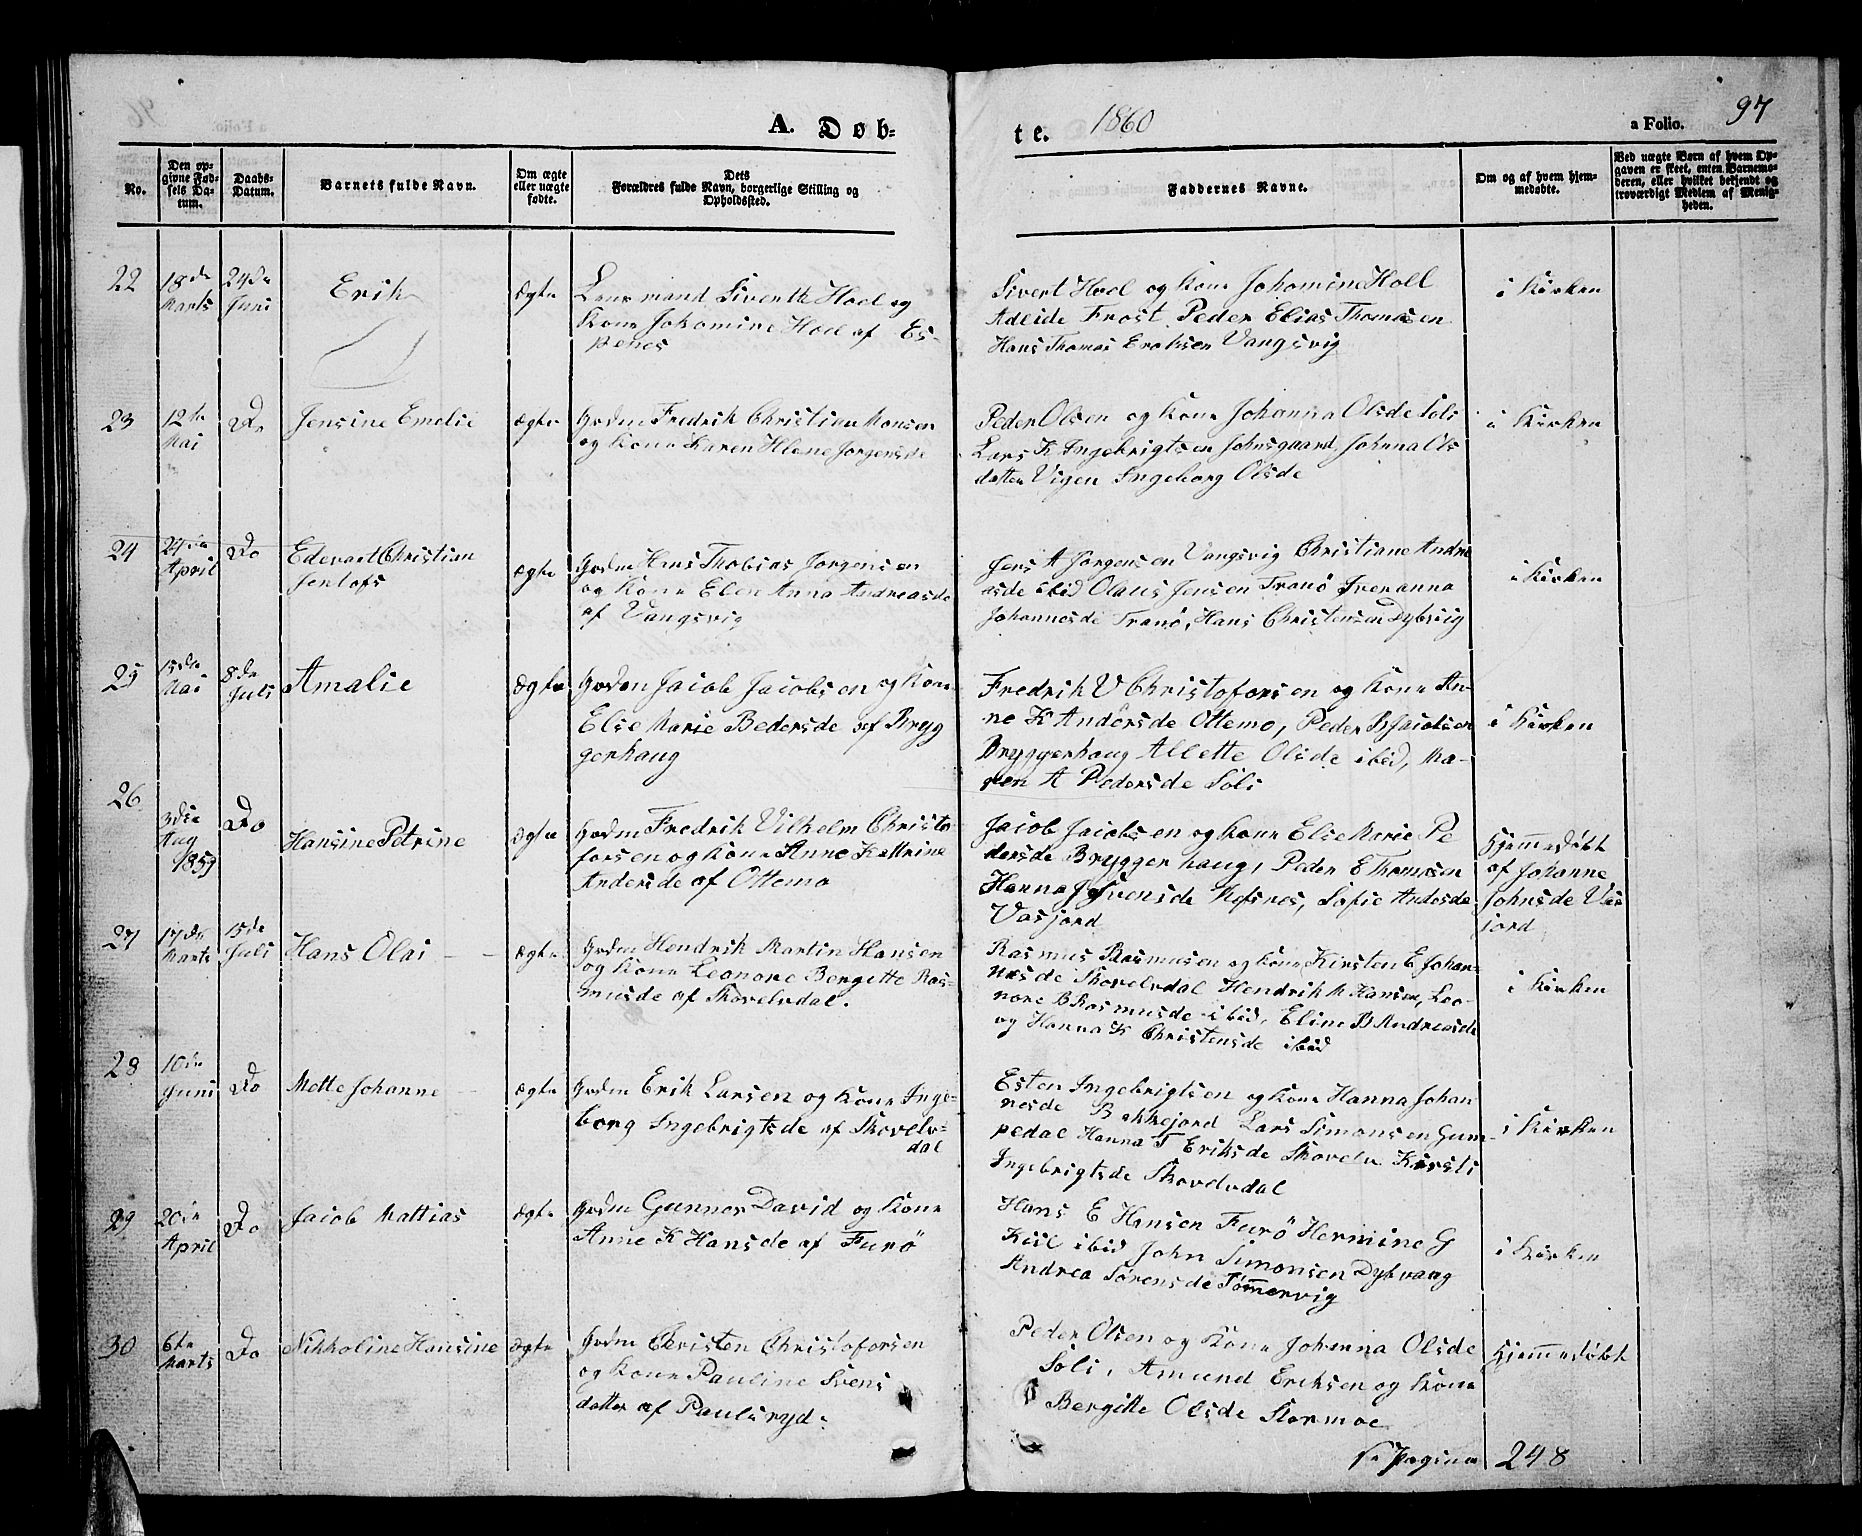 A. Døb-
te.
1860
a Folio.
97
No.
Den op-
givne Fød-
sels Da-
tum.
Daabs-
Datum.
Barnets fulde Navn.
Om ægte
eller uægte
fødte.
Dets
Forældres fulde Navn, borgerlige Stilling og
Opholdssted.
Faddernes Navne.
Om og af hvem hjem-
medøbte.
Ved uægte Børn af hvem Op-
gaven er skeet, enten Barnemo-
deren, eller hvilket bekjendt og
troværdigt Medlem af Menig-
heden.
22
18de
Marts
24de
Juni
Erik
ægte
Lensmand Siverth Hoel og
Kone Johomine Hoel af Es-
penes
Sivert Hoel og Kone Johomine Holl
Adleide Frost Peder Elias Thomasen
Hans Thomas Eriksen Vangsvig
i Kirken
23
12te
Mai
Do
Jensine Emelie
ægte
Grdm Fredrik Christian Monsen
og Kone Karen Hlene Jorgensde
Peder Olsen og Kone Johanna Olsde Soli
Lars K Ingebrigtsen Johnsgaard, Johnna Ols
datter Vigen Ingeborg Olsde
i Kirken
24
24de
April
Do
Edevart Christian
Jentofs
ægte
Grdm Hans Thobias Jorgensen
og Kone Elen Anna Andreasde
af Vangsvig
Jens A Jørgensen Vangsvig Christiane Andre
asde ibid Olaus Jensen Tranø Iveranna
Johannesde Tranö, Hans Christensen Dybvig
i Kirken
25
15de
Mai
8de
Juli
Amalie
ægte
Grdm Jacob Jacobsen og Kone
Else Marie Pedersde af Bryg
gerhaug
Fredrik V Christofersen og Kone An-
ne K Andersde Ottemo, Peder B Jacobsen
Bryggerhaug Allette Olsde ibid, Ma-
ren A Pedersde Soli
i Kirken
26
3die
Aug
1859
Do
Hansine Petrine
ægte
Grdm Fredrik Vilhelm Christo-
forsen og Kone Anne Kattrine
Andersde af Ottemo
Jacob Jacobsen og Kone Else Marie Pe
dersde Bryggerhaug, Peder E Thomasen
Hanna J Svensde Refsnes, Sofie Andesde
Vasjord
Hjemmedøbt
af Johanne
Johnsde Vas
jord
27
17de
Marts
15de
Juli
Hans Olai
ægte
Grdm Hendrik Martin Hansen
og Kone Leonore Bergitte Ras-
musde af Skovelvdal.
Rasmus Rasmusen og Kone Kirsten E Johan-
nesde Skovelvdal Hendrik M Hansen, Leo-
nore B Rasmusde ibid, Eline B Andreasde
og Hanna K Christensde ibid
i Kirken
28
10de
Juni
Do
Mette Johanne
ægte
Grdm Erik Larsen og Kone Inge-
borg Ingebrigtsde af Skovelv-
dal
Esten Ingebrigtsen og Kone Hanna Johan
nesde Bakkejord Lars Simonsen Gum-
pedal Hanna T Eriksde Skovelv Kirsti
Ingebrigtsde Skovelvdal
i Kirken
29
20de
April
Do
Jacob Mattias
ægte
Grdm Gunner David og Kone
Anne K Hansde af Furö
Hans E Hansen Furö Hermine G
Kiil ibid John Simonsen Dybvaag
Andrea Sørensde Tømmervig
i Kirken
30
6te
Marts
Do
Nikkoline Hansine
ægte
Grdm Christen Christofersen
og Kone Pauline Svens
datter af Paulsryd.
Peder Olsen og Kone Johanna Olsde
Soli, Amund Eriksen og Kone
Bergitte Olsde Stormoe
Hjemmedøbt
se Pagina 248